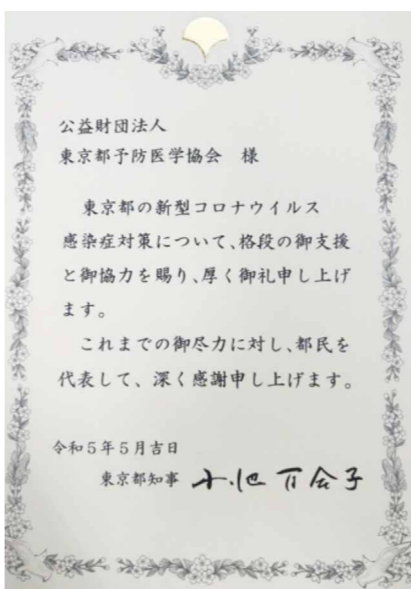 公益財団法人
東京都予防医学協会　様
東京都の新型コロナウイルス
感染症対策について、格段の御支援
と御協力を賜り、厚く御礼申し上げ
ます。
これまでの御尽力に対し、都民を
代表して、深く感謝申し上げます。
令和5年5月吉日
東京都知事 小池百合子